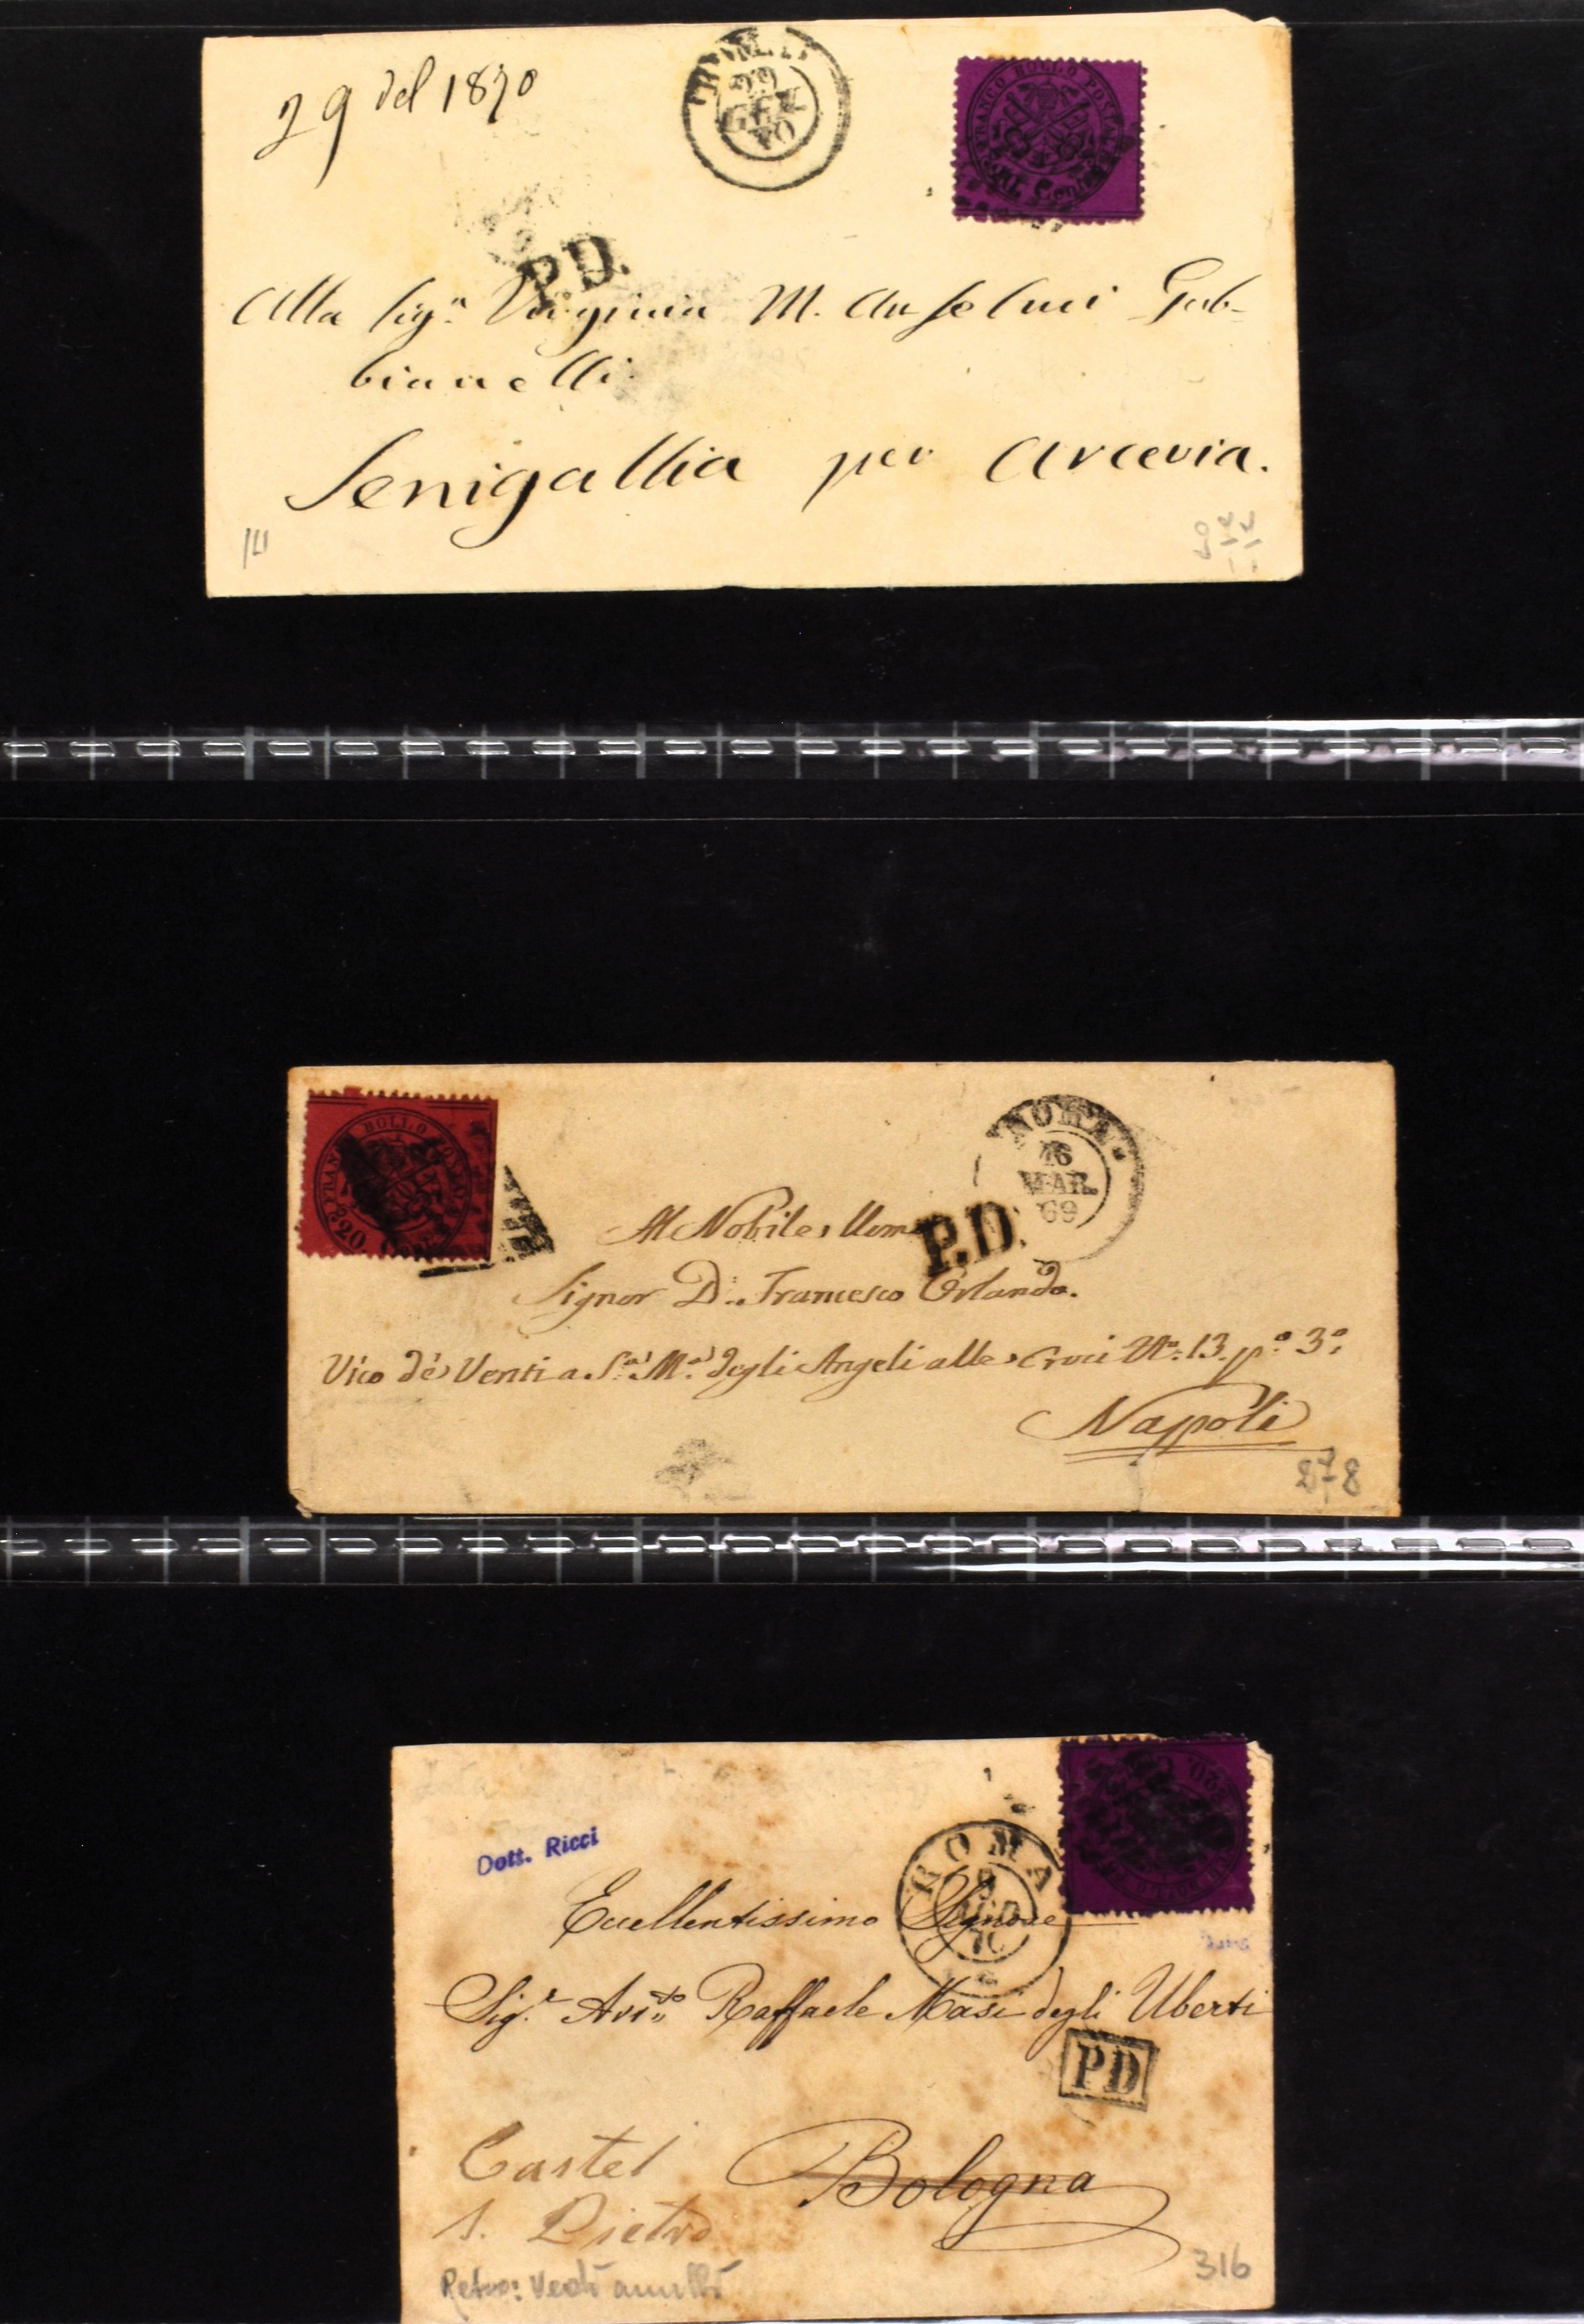 29 del 1870
ROMA
29
GEN
70
FRANCO BOLLO POSTALE
P.D.
Alla Sig.ª Virginia M. Anselmi Gab-
bianelli.
Senigallia per Arcevia.
BOLLO
ROMA
16
MAR.
69
P.D.
Al Nobile Uomo
Signor D. Francesco Orlando.
Vico de' Venti a S.ª M.ª degli Angeli alle Croci N.º 13. p.º 3.º
Napoli
878
Dott. Ricci
ROMA
9
AGO
70
Eccellentissimo Signore
Sig.r Avv.to Raffaele Masi degli Uberti
PD
Castel Bologna
S. Pietro
Retro: Vedi annulli
316